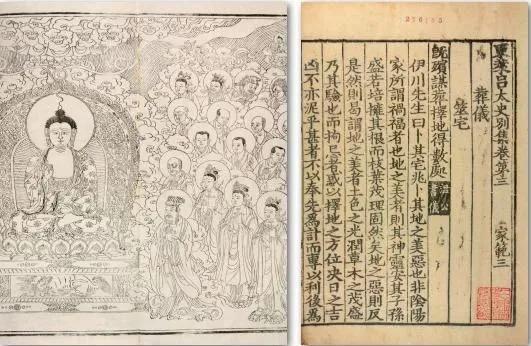 東萊呂太史別集卷第三 家範三
葬儀
筮宅
既殯謀葬擇地得數處
伊川先生曰卜其宅兆卜其地之美惡也非陰陽
家所謂禍福者也地之美者則其神靈安其子孫
盛若培壅其根而枝葉茂理固然矣地之惡則反
是然則曷謂地之美者土色之光潤草木之茂盛
乃其驗也而拘忌者惑以擇地之方位決日之吉
凶不亦泥乎甚者不以奉先爲計而專以利後爲